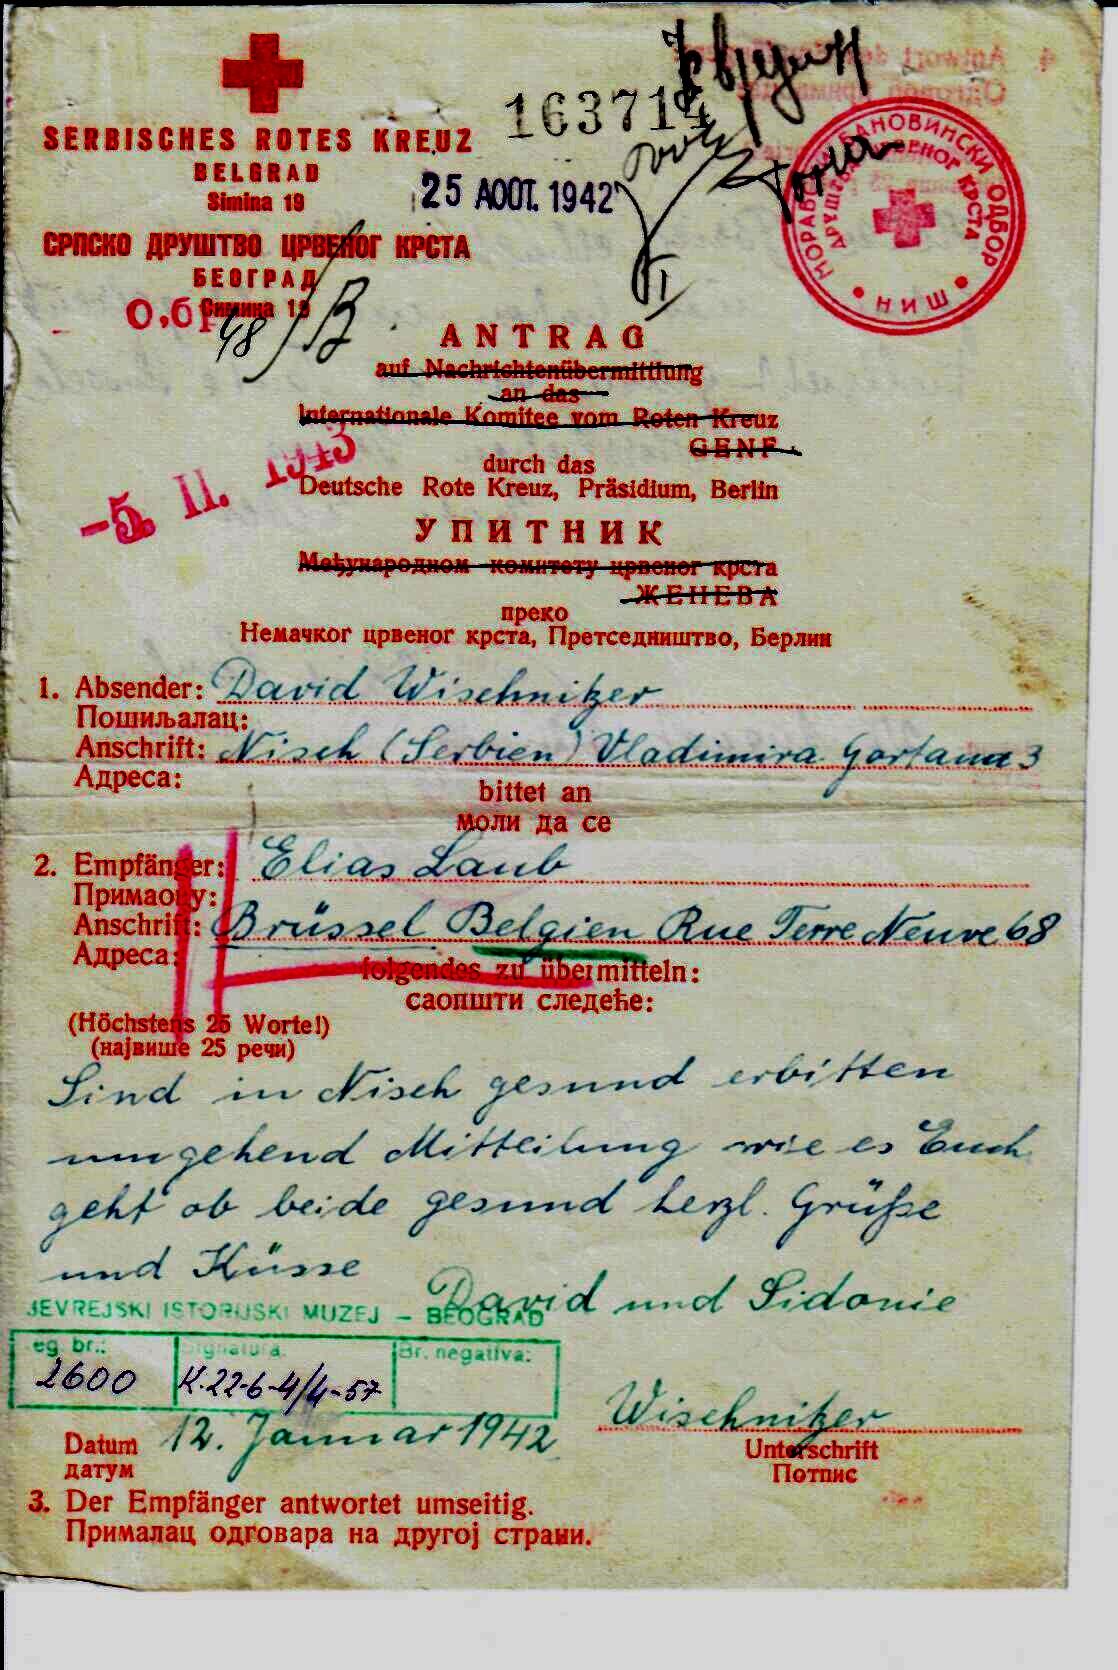 SERBISCHES ROTES KREUZ
BELGRAD
Simina 19
СРПСКО ДРУШТВО ЦРВЕНОГ КРСТА
БЕОГРАД
Симина 19
163714
25 AOÛT. 1942
МОРАВСКИ БАНОВИНСКИ ОДБОР
ДРУШТВА ЦРВЕНОГ КРСТА
НИШ
48/B
ANTRAG
auf Nachrichtenübermittlung
an das
Internationale Komitee vom Roten Kreuz
GENF
-5. II. 1943
durch das
Deutsche Rote Kreuz, Präsidium, Berlin
УПИТНИК
Међународном комитету црвеног крста
ЖЕНЕВА
преко
Немачког црвеног крста, Претседништво, Берлин
1. Absender: David Wischnitzer
Пошиљалац:
Anschrift: Nisch (Serbien) Vladimira Gortana 3
Адреса:
bittet an
моли да се
2. Empfänger: Elias Laub
Примаоцу:
Anschrift: Brüssel Belgien Rue Terre Neuve 68
Адреса:
folgendes zu übermitteln:
саопшти следеће:
(Höchstens 25 Worte!)
(највише 25 речи)
Sind in Nisch gesund erbitten
umgehend Mitteilung wie es Euch
geht ob beide gesund herzl. Grüße
und Küsse
David und Sidonie
JEVREJSKI ISTORIJSKI MUZEJ – BEOGRAD
eg. br.: Signatura: Br. negativa:
2600 K.22-6-4/4-57
Wischnitzer
Datum 12. Januar 1942
датум
Unterschrift
Потпис
3. Der Empfänger antwortet umseitig.
Прималац одговара на другој страни.